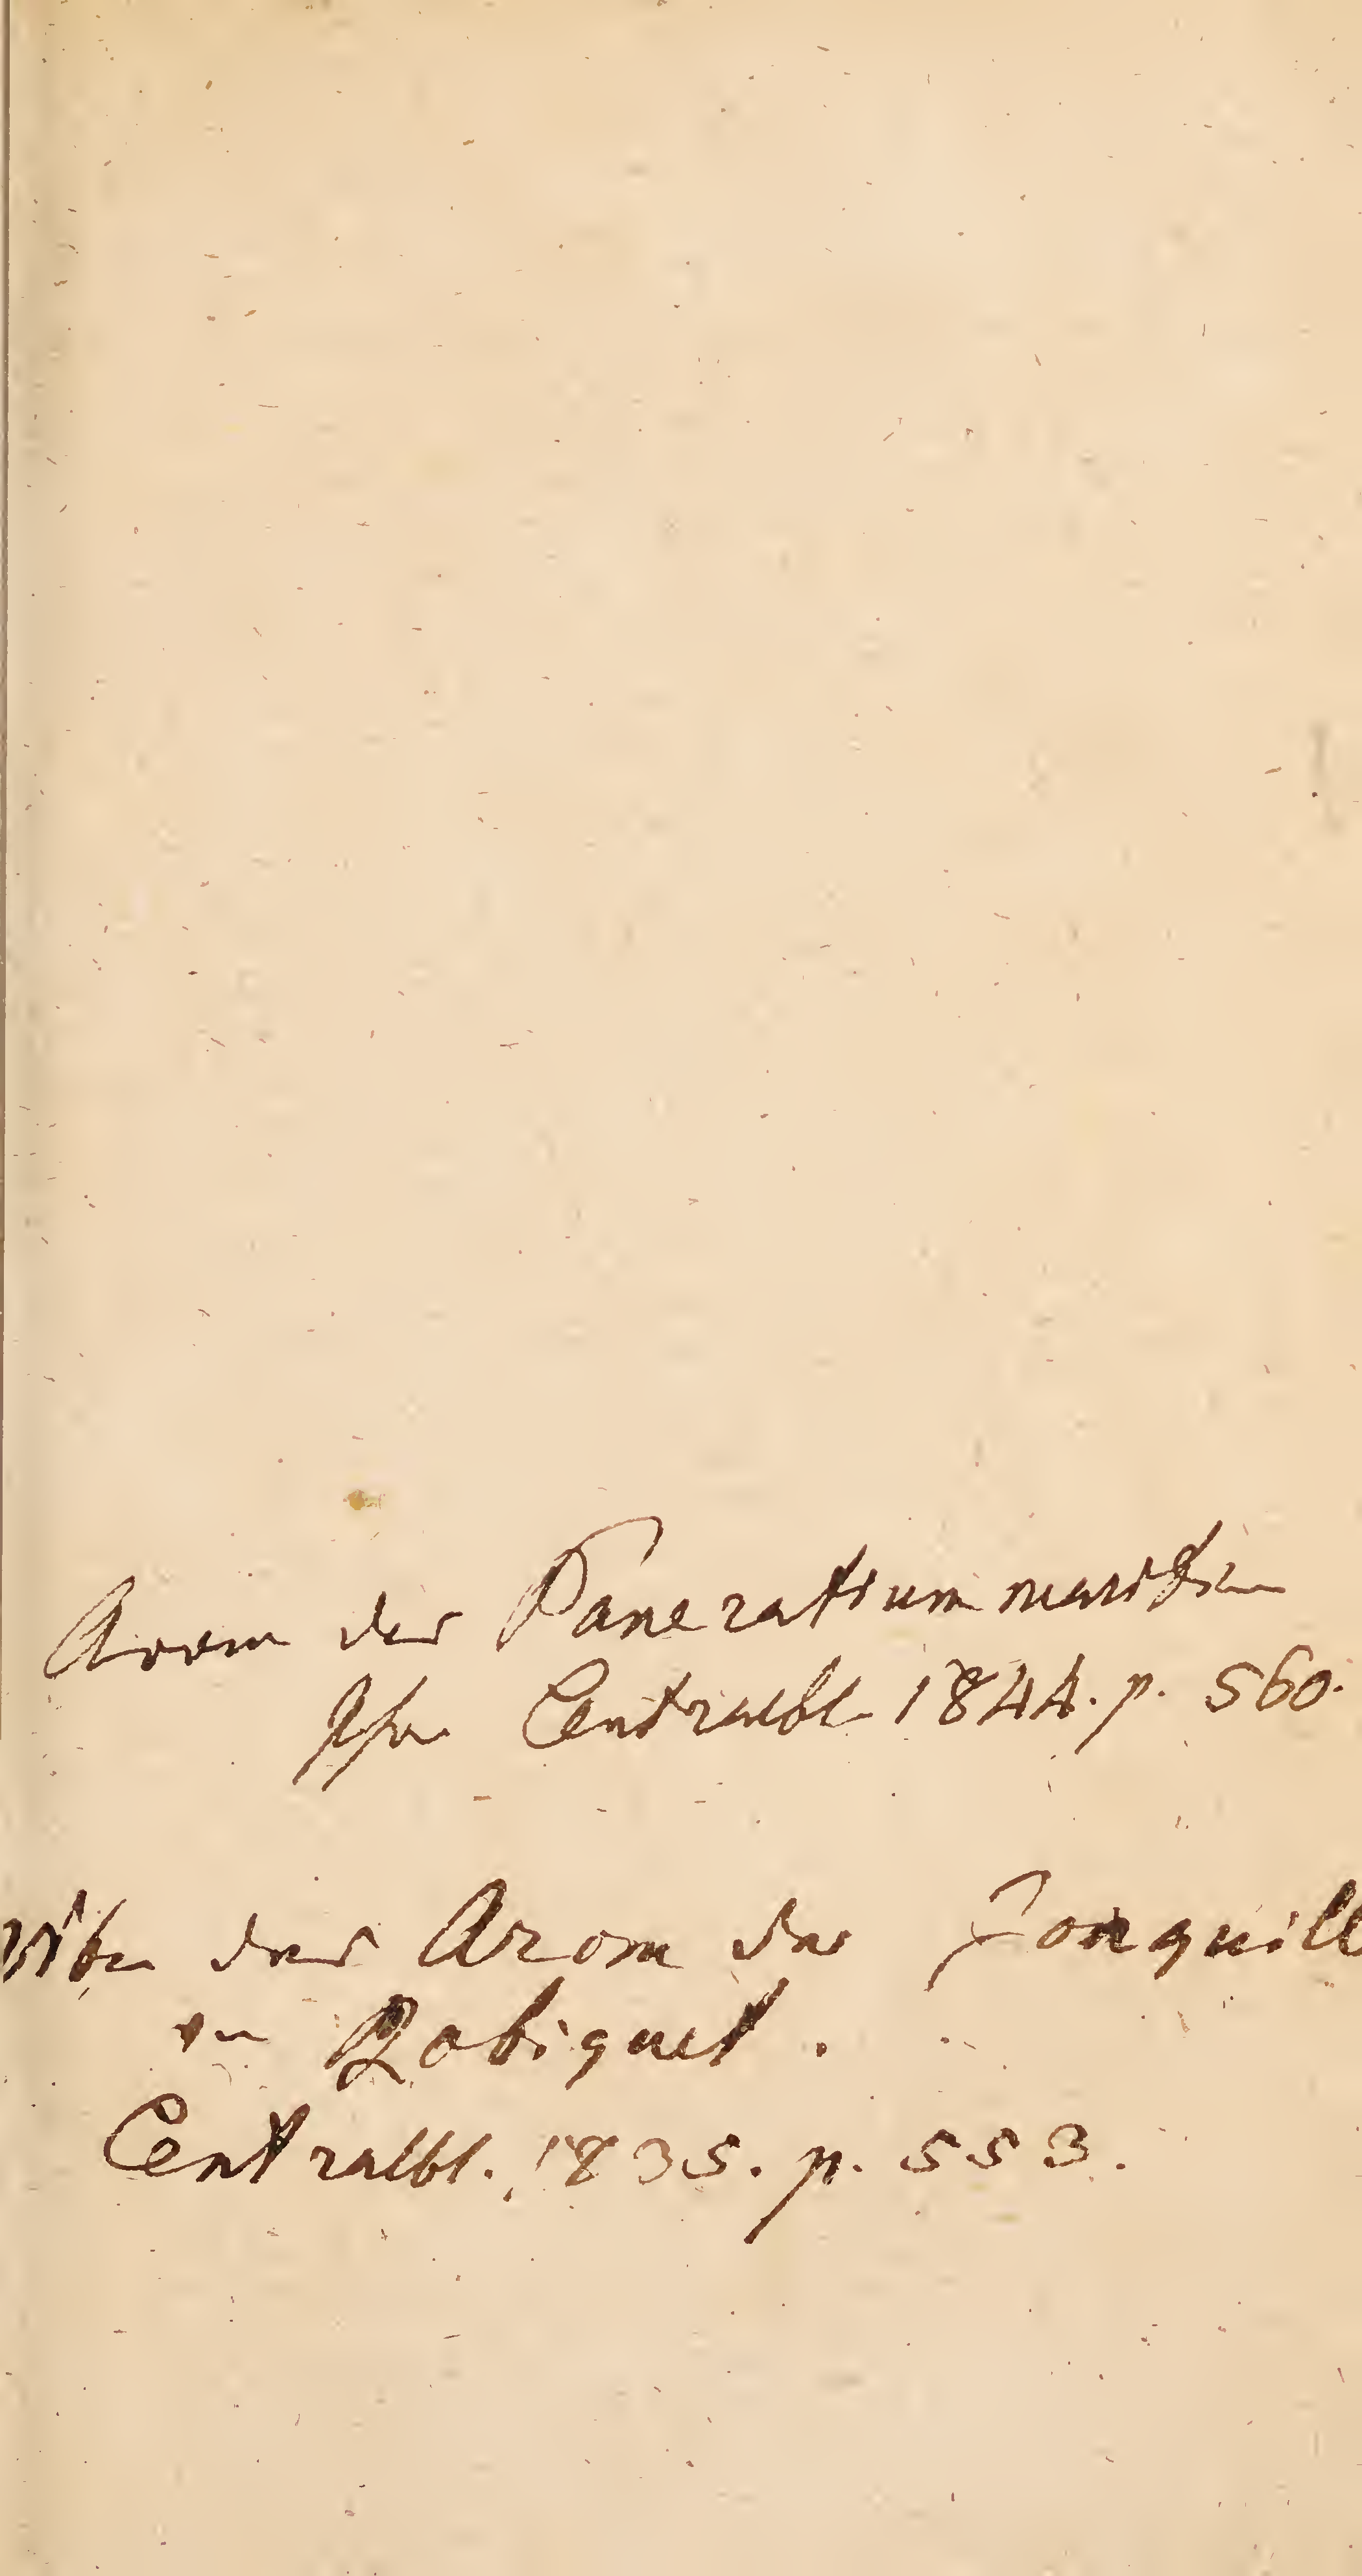 Arom des Pancratium maritim
Phm Centralbl 1844. p. 560.
über das Arom der Jonquill
von Robiquet.
Centralbl. 1835. p. 553.